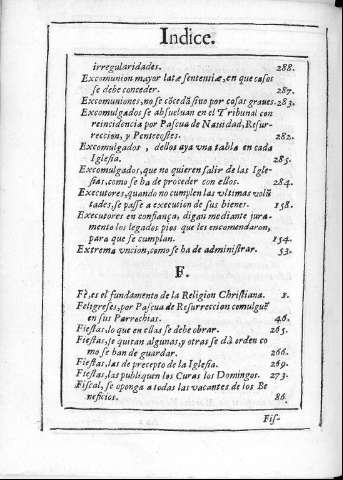 Indice.
irregularidades. 288.
Excomunion mayor latæ sententiæ, en que casos
se debe conceder. 287.
Excomuniones, no se cōcedā sino por cosas graues. 283.
Excomulgados se absueluan en el Tribunal con
reincidencia por Pascua de Nauidad, Resur-
reccion, y Pentecostes. 282.
Excomulgados, dellos aya vna tabla en cada
Iglesia. 285.
Excomulgados, que no quieren salir de las Igle-
sias, como se ha de proceder con ellos. 284.
Executores, quando no cumplen las vltimas volū
tades, se passe a execucion de sus bienes. 158.
Executores en confiança, digan mediante jura-
mento los legados pios que les encomendaron,
para que se cumplan. 154.
Extrema vncion, como se ha de administrar. 53.
F.
Fè, es el fundamento de la Religion Christiana. 1.
Feligreses, por Pascua de Resurreccion comulguē
en sus Parrochias. 46.
Fiestas, lo que en ellas se debe obrar. 265.
Fiestas, se quitan algunas, y otras se dà orden co
mo se han de guardar. 266.
Fiestas, las de precepto de la Iglesia. 269.
Fiestas, las publiquen los Curas los Domingos. 273.
Fiscal, se oponga a todas las vacantes de los Be
neficios. 86.
Fis-